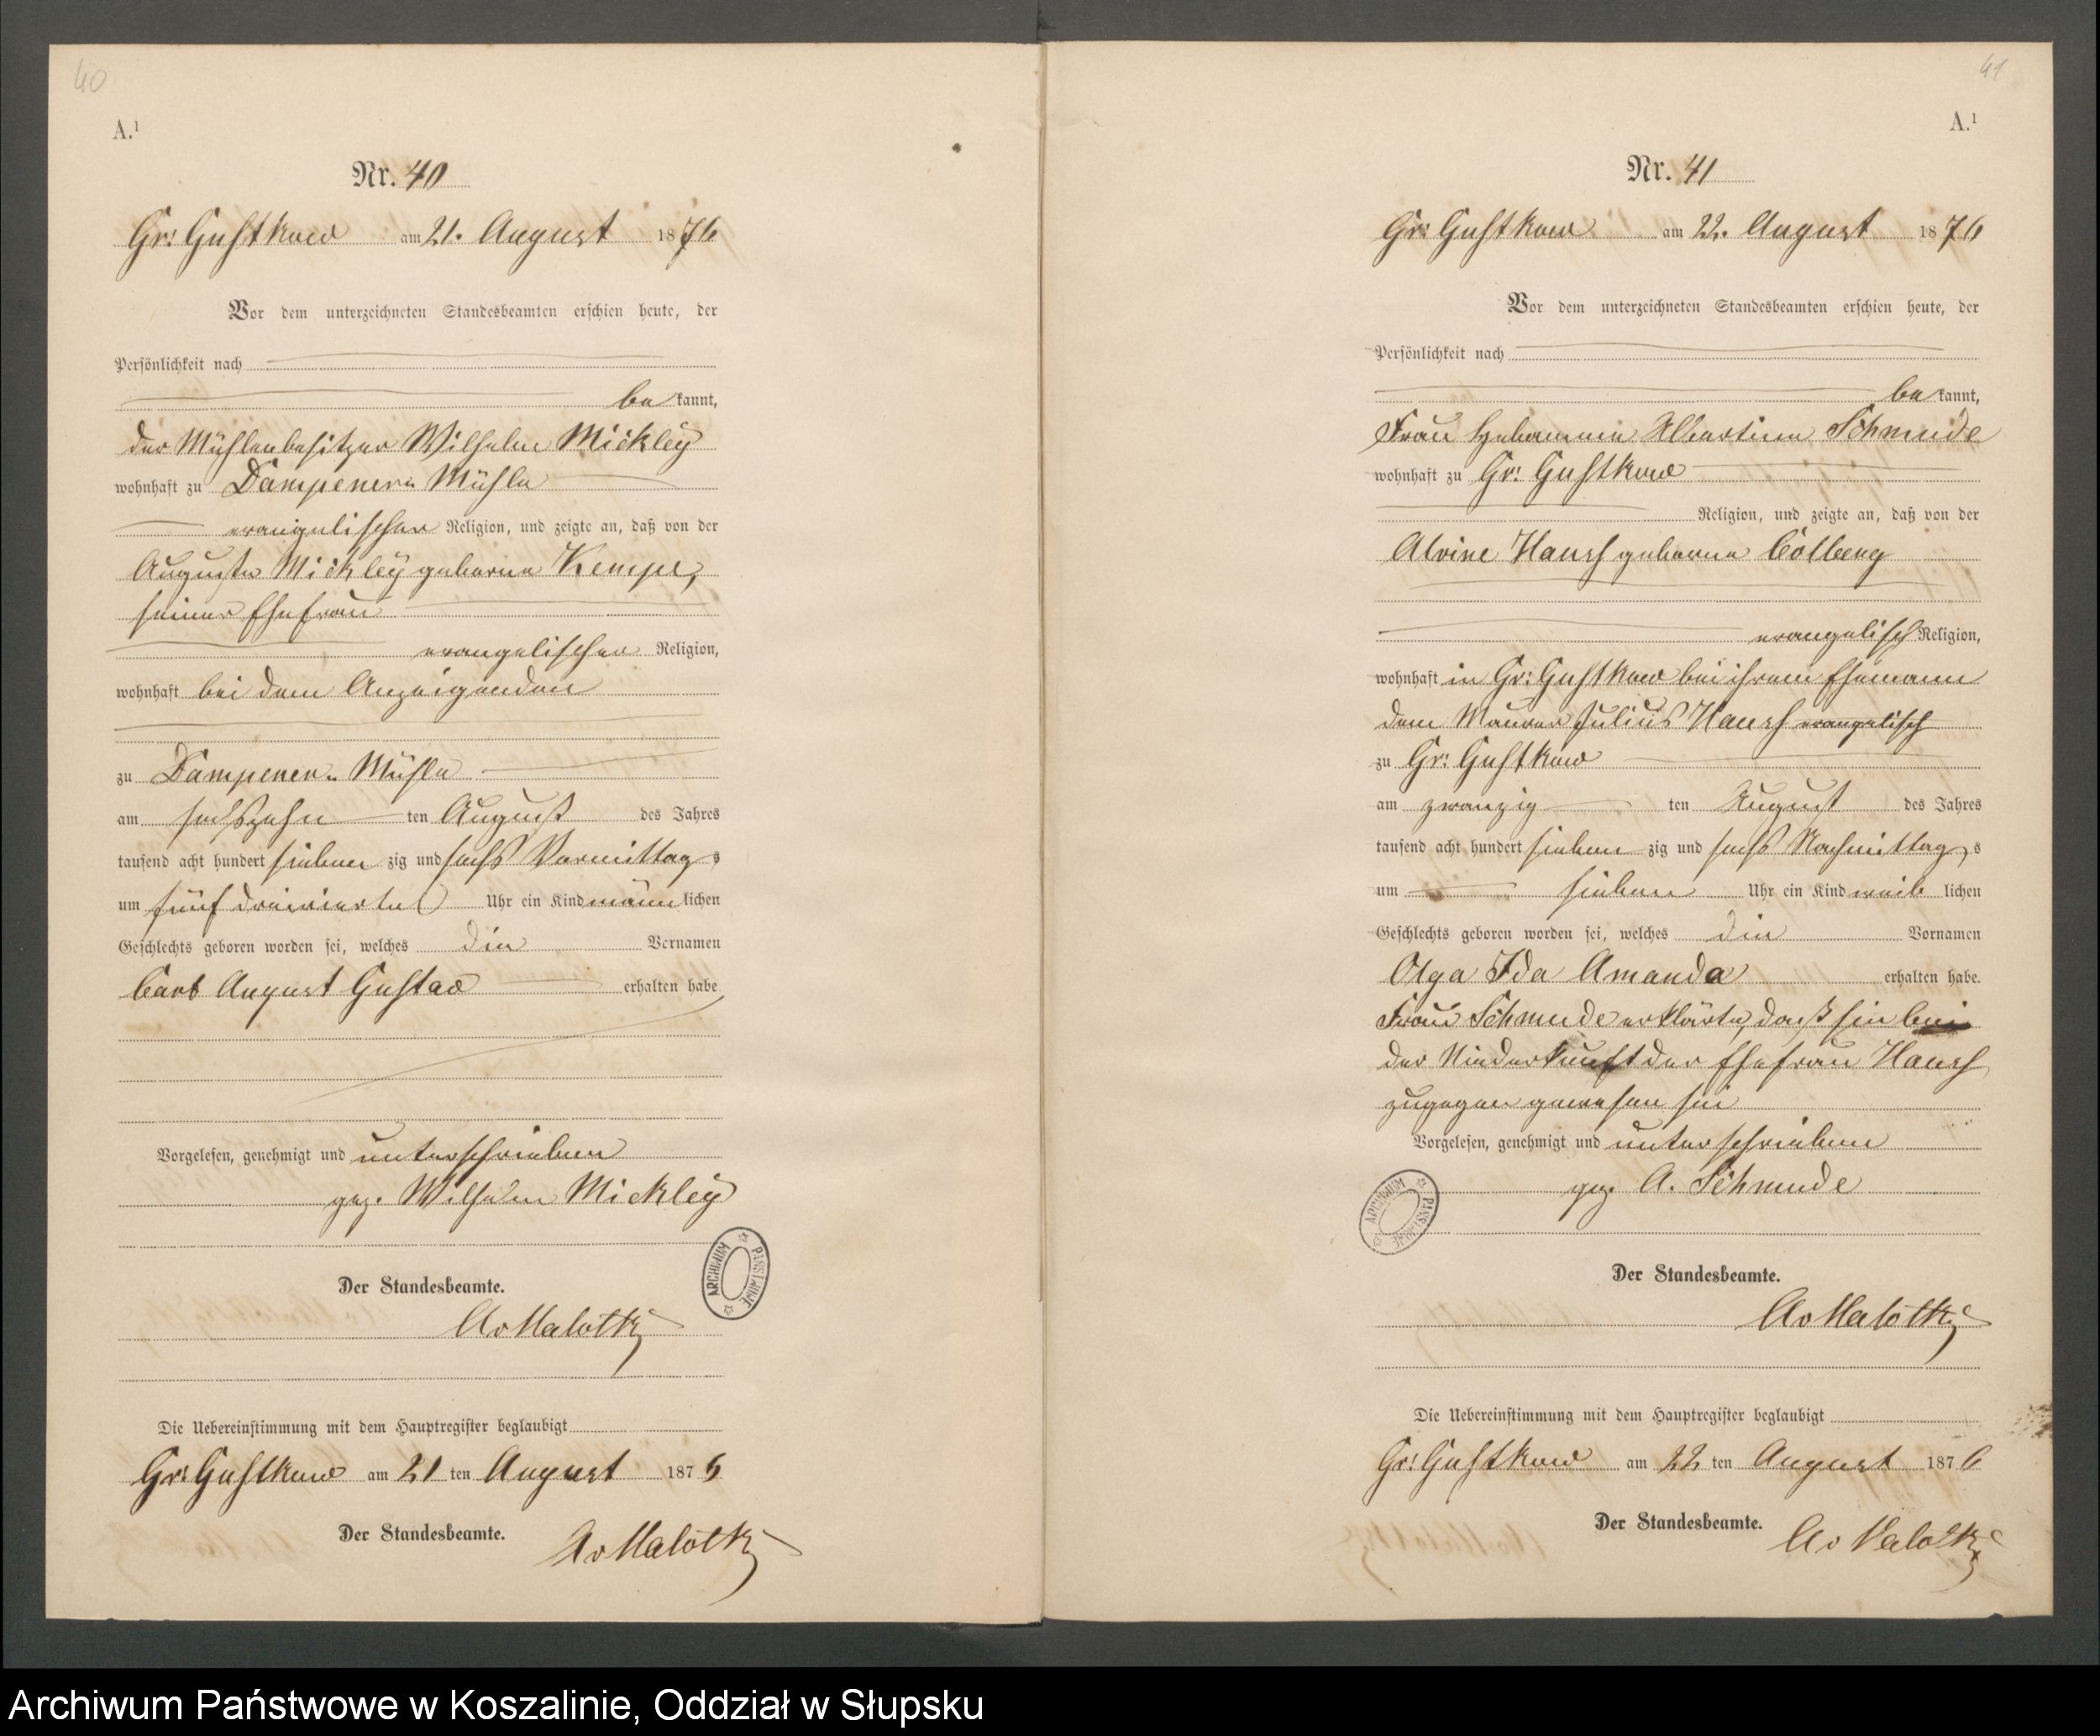 40
A.¹
Nr. 40
Gr: Gustkow am 21. August 1876
Vor dem unterzeichneten Standesbeamten erschien heute, der
Persönlichkeit nach
be kannt,
der Mühlenbesitzer Wilhelm Mickley
wohnhaft zu Dampener Mühle
evangelischer Religion, und zeigte an, daß von der
Auguste Mickley geborne Kempe,
seiner Ehefrau
evangelischer Religion,
wohnhaft bei dem Anzeigenden
zu Dampener Mühle
am sechszehn ten August des Jahres
tausend acht hundert sieben zig und sechs Vormittag s
um fünf dreiviertel Uhr ein Kind männ lichen
Geschlechts geboren worden sei, welches die Vornamen
Carl August Gustav erhalten habe
Vorgelesen, genehmigt und unterschrieben
gez. Wilhelm Mickley
ARCHIWUM PAŃSTWOWE
Der Standesbeamte.
AvMalottky
Die Uebereinstimmung mit dem Hauptregister beglaubigt
Gr: Gustkow am 21 ten August 1876
Der Standesbeamte. AvMalottky
41
A.¹
Nr. 41
Gr: Gustkow am 22. August 1876
Vor dem unterzeichneten Standesbeamten erschien heute, der
Persönlichkeit nach
be kannt,
Frau Hebamme Albertine Schmude
wohnhaft zu Gr: Gustkow
Religion, und zeigte an, daß von der
Alvine Hansch geborne Colberg
evangelisch Religion,
wohnhaft in Gr: Gustkow bei ihrem Ehemann
dem Maurer Julius Hansch evangelisch
zu Gr: Gustkow
am zwanzig ten August des Jahres
tausend acht hundert sieben zig und sechs Nachmittag s
um sieben Uhr ein Kind weib lichen
Geschlechts geboren worden sei, welches die Vornamen
Olga Ida Amanda erhalten habe.
Frau Schmude erklärte, daß sie bei
der Niederkunft der Ehefrau Hansch
zugegen gewesen sei
Vorgelesen, genehmigt und unterschrieben
gez. A. Schmude
ARCHIWUM PAŃSTWOWE
Der Standesbeamte.
AvMalottky
Die Uebereinstimmung mit dem Hauptregister beglaubigt
Gr: Gustkow am 22 ten August 1876
Der Standesbeamte. AvMalottky
Archiwum Państwowe w Koszalinie, Oddział w Słupsku